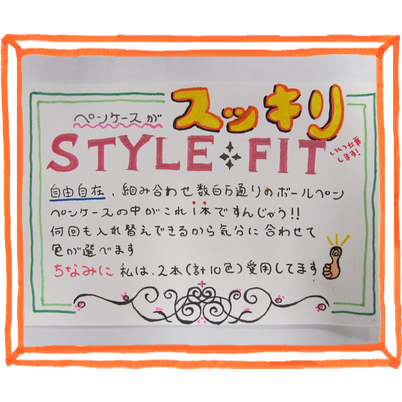 ペンケースが スッキリ
STYLE FIT
します!
自由自在、組み合わせ数百通りのボールペン
ペンケースの中がこれ1本ですんじゃう!!
何回も入れ替えできるから気分に合わせて
色が選べます
ちなみに 私は、2本(計10色)愛用してます